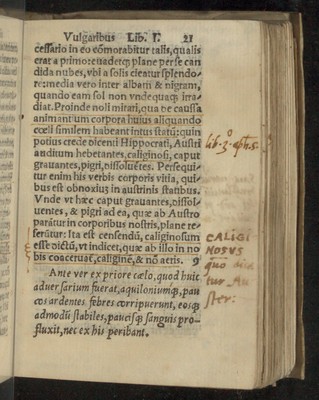 Vulgaribus Lib. I. 21
cessario in eo cōmorabitur talis, qualis
erat a primo: euadetq; plane per se can
dida nubes, vbi a solis cieatur splendo-
re: media vero inter albam & nigram,
quando eam sol non vndequaq; irra-
diat. Proinde noli mirati, qua de caussa
animantium corpora huius aliquando
cœli similem habeant intus statū: quin
potius crede dicenti Hippocrati, Austri
auditum hebetantes, caliginosi, caput
grauantes, pigri, dissoluētes. Persequi-
tur enim his verbis corporis vitia, qui-
bus est obnoxius in austrinis statibus.
Vnde vt hæc caput grauantes, dissol-
uentes, & pigri ad ea, quæ ab Austro
parātur in corporibus nostris, plane re-
ferūtur: Ita est censendū, caliginosum
esse dictū, vt indicet, quæ ab illo in no
bis coaceruāt, caliginē, & nō aeris. 9
Ante ver ex priore cælo, quod huic
aduersarium fuerat, aquiloniumq;, pau
cos ardentes febres corripuerunt, eosq;
admodū stabiles, paucisq; sanguis pro-
fluxit, nec ex his peribant.
lib. 3. aph. 5.
CALIGI
NOSVS
quo dica
tur Au
ster: